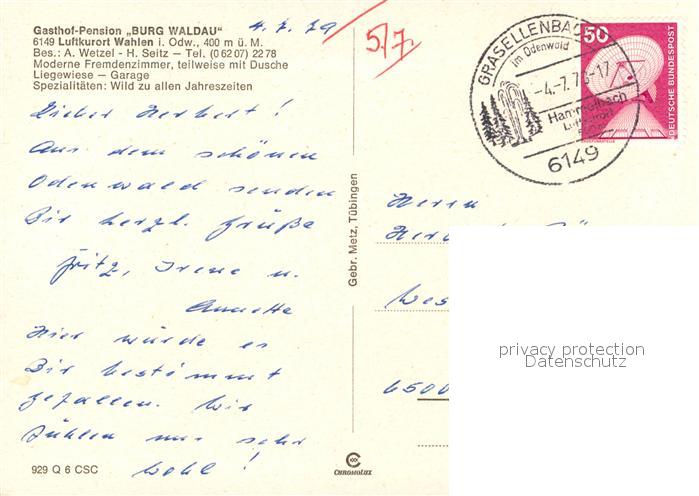 Gasthof-Pension „BURG WALDAU“
6149 Luftkurort Wahlen i. Odw., 400 m ü. M.
Bes.: A. Wetzel - H. Seitz – Tel. (0 62 07) 22 78
Moderne Fremdenzimmer, teilweise mit Dusche
Liegewiese – Garage
Spezialitäten: Wild zu allen Jahreszeiten
4.7.79
5/7.
Lieber Herbert!
Aus dem schönen
Odenwald senden
Dir herzl. Grüße
Fritz, Irene u.
Annette
Hier würde es
Dir bestimmt
gefallen. Wir
fühlen uns sehr
wohl!
929 Q 6 CSC
Gebr. Metz, Tübingen
CHROMOLUX
GRASELLENBA
im Odenwald
-4.-7.7 -17
Hammelbach
6149
50
DEUTSCHE BUNDESPOST
Herrn
6500
privacy protection
Datenschutz